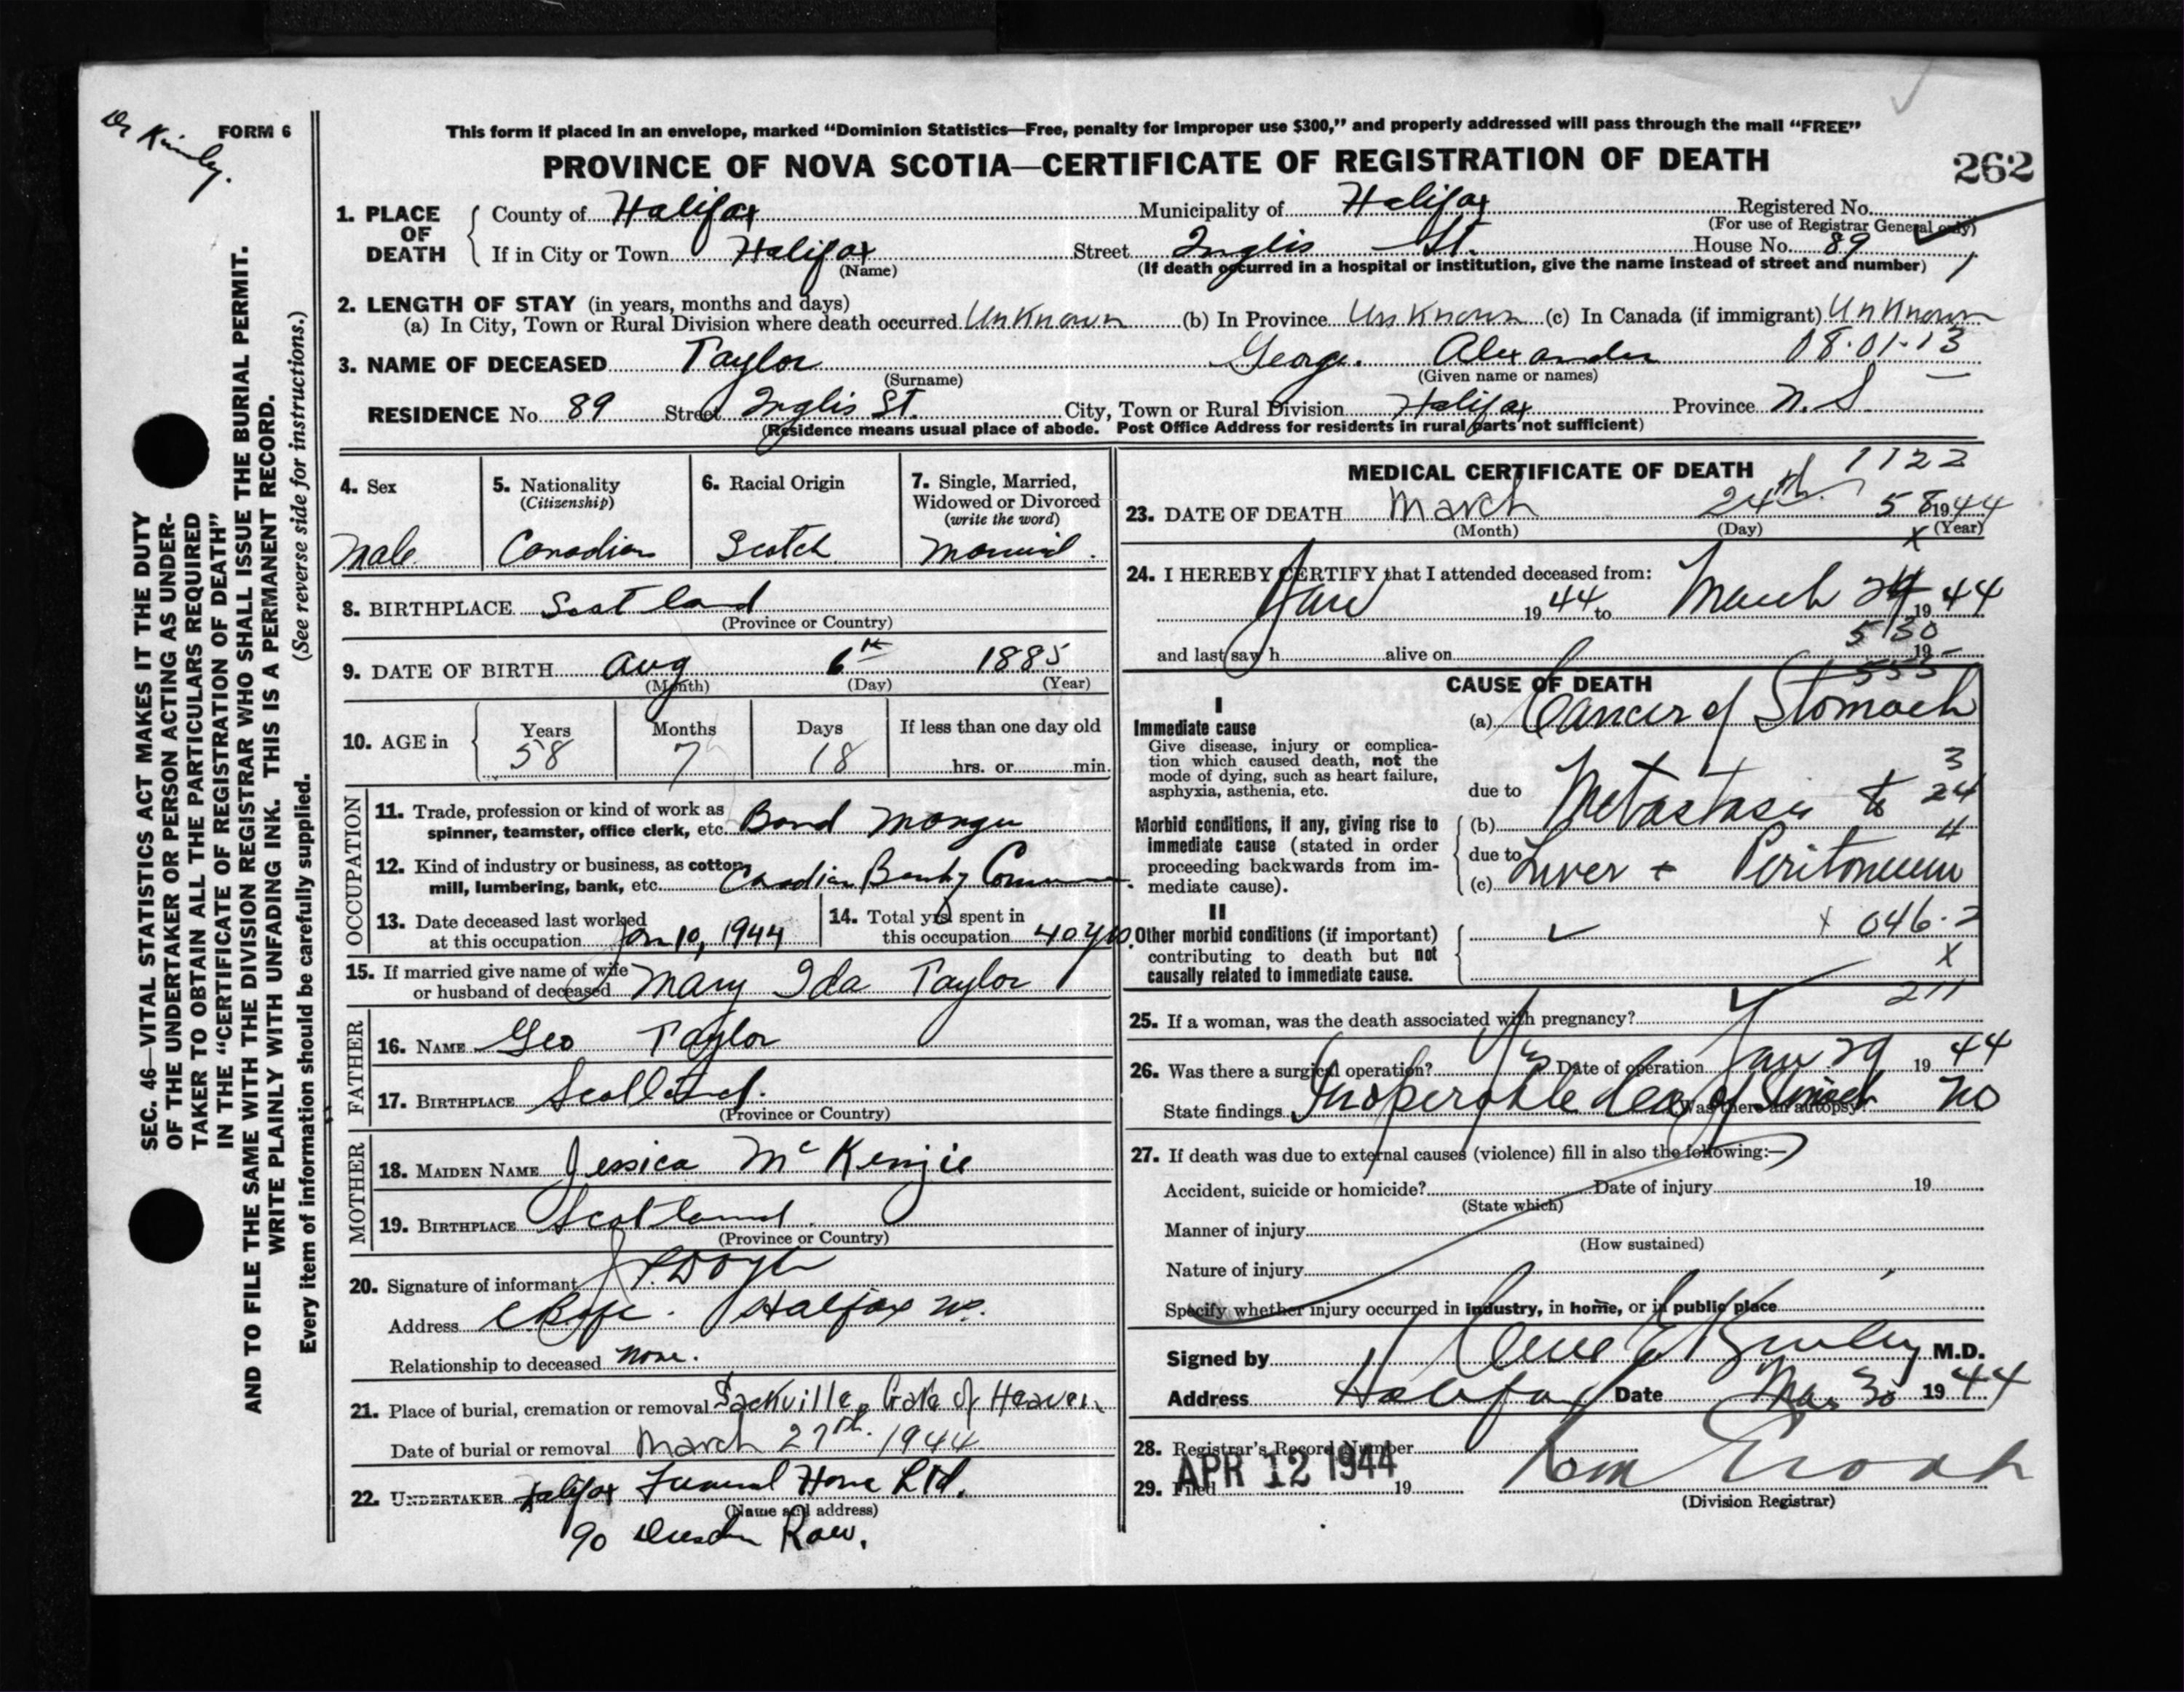 Dr Kinley.
FORM 6
This form if placed in an envelope, marked “Dominion Statistics—Free, penalty for improper use $300,” and properly addressed will pass through the mail “FREE”
PROVINCE OF NOVA SCOTIA—CERTIFICATE OF REGISTRATION OF DEATH
262
SEC. 46—VITAL STATISTICS ACT MAKES IT THE DUTY
OF THE UNDERTAKER OR PERSON ACTING AS UNDER-
TAKER TO OBTAIN ALL THE PARTICULARS REQUIRED
IN THE “CERTIFICATE OF REGISTRATION OF DEATH”
AND TO FILE THE SAME WITH THE DIVISION REGISTRAR WHO SHALL ISSUE THE BURIAL PERMIT.
WRITE PLAINLY WITH UNFADING INK. THIS IS A PERMANENT RECORD.
Every item of information should be carefully supplied. (See reverse side for instructions.)
1. PLACE OF DEATH
County of Halifax Municipality of Halifax Registered No.
(For use of Registrar General only)
If in City or Town Halifax Street Inglis St. House No. 89
(Name) (If death occurred in a hospital or institution, give the name instead of street and number)
2. LENGTH OF STAY (in years, months and days)
(a) In City, Town or Rural Division where death occurred Unknown (b) In Province Unknown (c) In Canada (if immigrant) Unknown
3. NAME OF DECEASED Taylor George Alexander 08.01.13
(Surname) (Given name or names)
RESIDENCE No. 89 Street Inglis St. City, Town or Rural Division Halifax Province N.S.
(Residence means usual place of abode. Post Office Address for residents in rural parts not sufficient)
4. Sex
Male
5. Nationality
(Citizenship)
Canadian
6. Racial Origin
Scotch
7. Single, Married,
Widowed or Divorced
(write the word)
Married.
8. BIRTHPLACE Scotland
(Province or Country)
9. DATE OF BIRTH Aug 6th 1885
(Month) (Day) (Year)
10. AGE in
Years Months Days If less than one day old
58 7 18 hrs. or min.
OCCUPATION
11. Trade, profession or kind of work as
spinner, teamster, office clerk, etc. Bond
12. Kind of industry or business, as cotton
mill, lumbering, bank, etc. Canadian Bank of Commerce.
13. Date deceased last worked
at this occupation Jan 10, 1944
14. Total yrs. spent in
this occupation 40 yrs.
15. If married give name of wife
or husband of deceased Mary Ida Taylor
FATHER
16. NAME Geo Taylor
17. BIRTHPLACE Scotland.
(Province or Country)
MOTHER
18. MAIDEN NAME Jessica McKenzie
19. BIRTHPLACE Scotland.
(Province or Country)
20. Signature of informant Doyle
Address Halifax NS.
Relationship to deceased None.
21. Place of burial, cremation or removal Sackville, Gate of Heaven
Date of burial or removal March 27th. 1944
22. UNDERTAKER Halifax Funeral Home Ltd.
(Name and address)
90 Dresden Row.
MEDICAL CERTIFICATE OF DEATH 1122
23. DATE OF DEATH March 24th. 58 1944
(Month) (Day) (Year)
x
24. I HEREBY CERTIFY that I attended deceased from:
Jan 1944 to March 24 1944
530
and last saw h alive on 19
555
CAUSE OF DEATH
I
Immediate cause
Give disease, injury or complica-
tion which caused death, not the
mode of dying, such as heart failure,
asphyxia, asthenia, etc.
(a) Cancer of Stomach
3
due to
24
Morbid conditions, if any, giving rise to
immediate cause (stated in order
proceeding backwards from im-
mediate cause).
(b) Metastasis to
4
due to
(c) Liver + Peritoneum
II
Other morbid conditions (if important)
contributing to death but not
causally related to immediate cause.
x 046.2
x
211
25. If a woman, was the death associated with pregnancy?
26. Was there a surgical operation? Yes Date of operation Jan 29 1944
State findings Inoperable Ca of Stomach Was there an autopsy? No
27. If death was due to external causes (violence) fill in also the following:—
Accident, suicide or homicide? Date of injury 19
(State which)
Manner of injury
(How sustained)
Nature of injury
Specify whether injury occurred in industry, in home, or in public place
Signed by Kinley M.D.
Address Halifax Date Mar 30 1944
28. Registrar's Record Number
29. Filed 19
APR 12 1944
(Division Registrar)